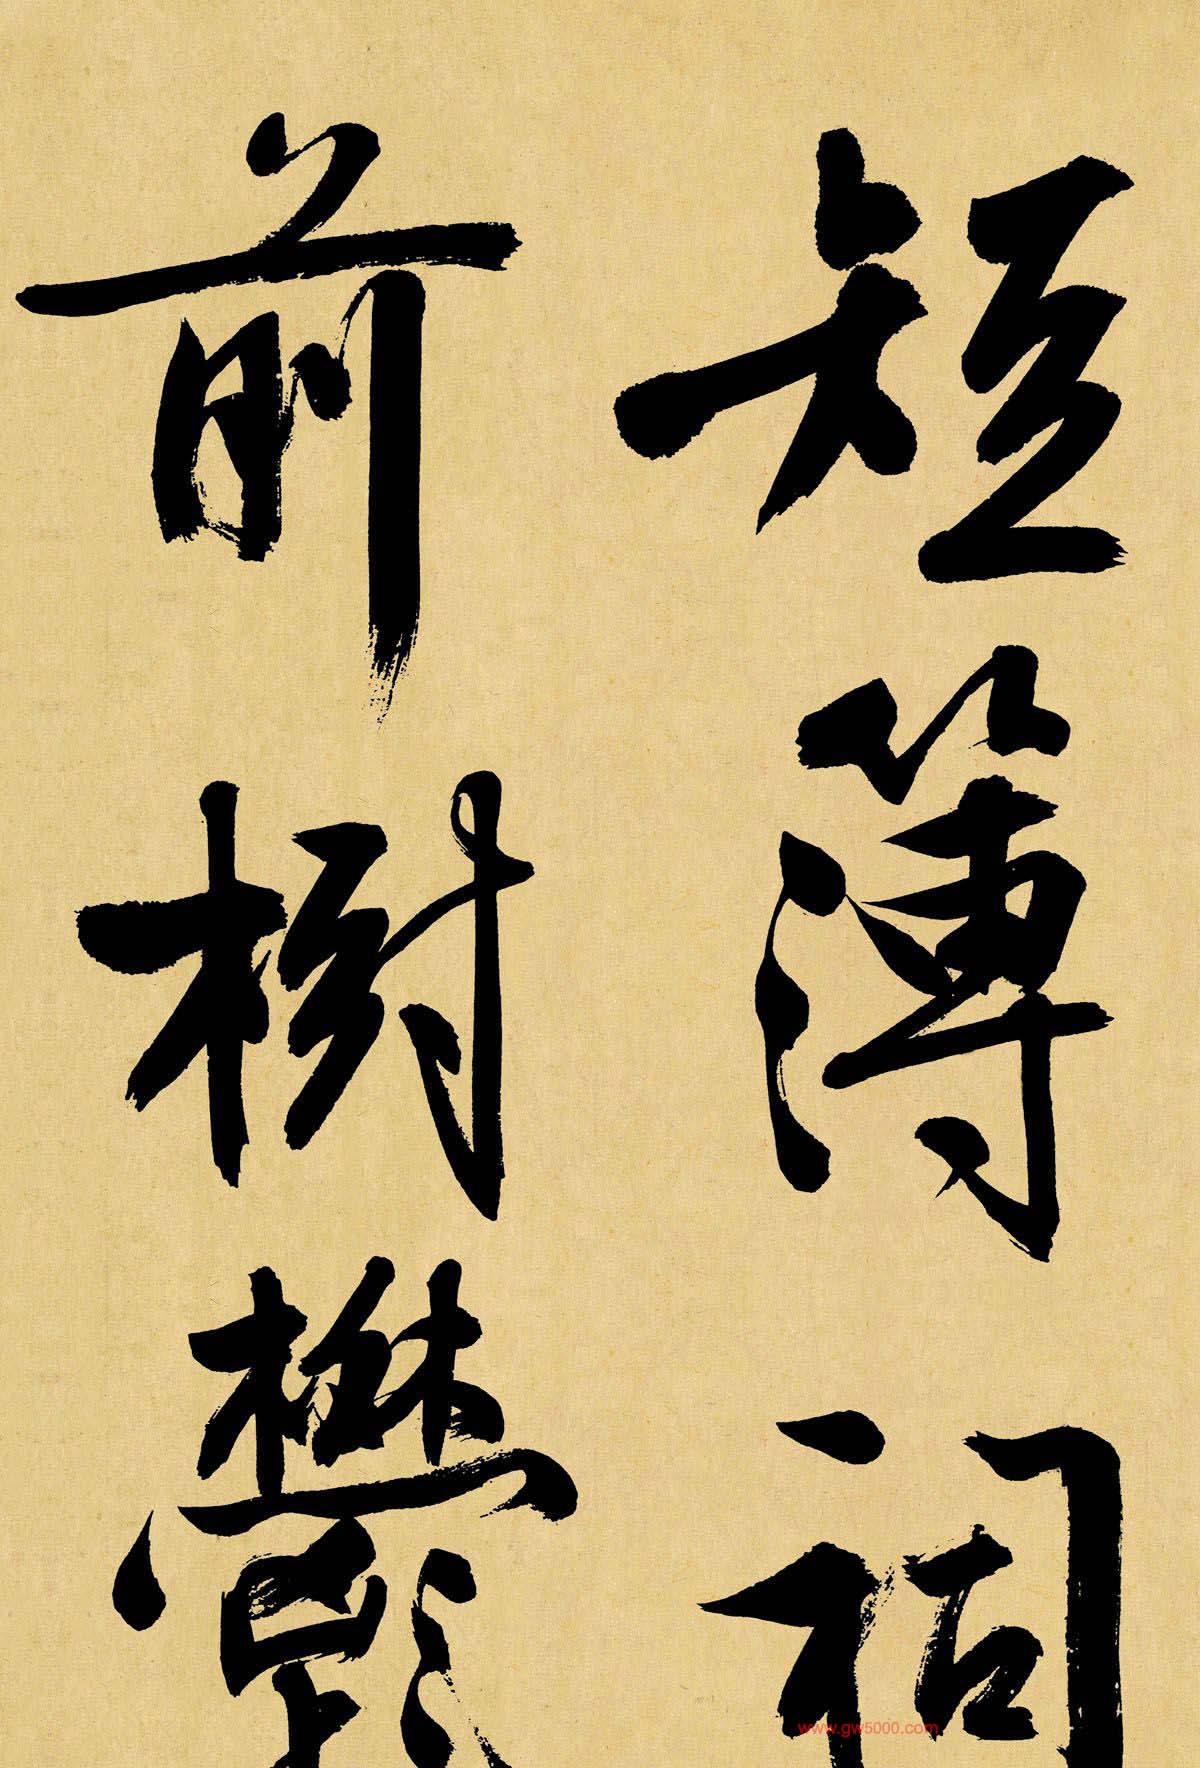 短簿祠
前樹鬱
www.gw5000.com